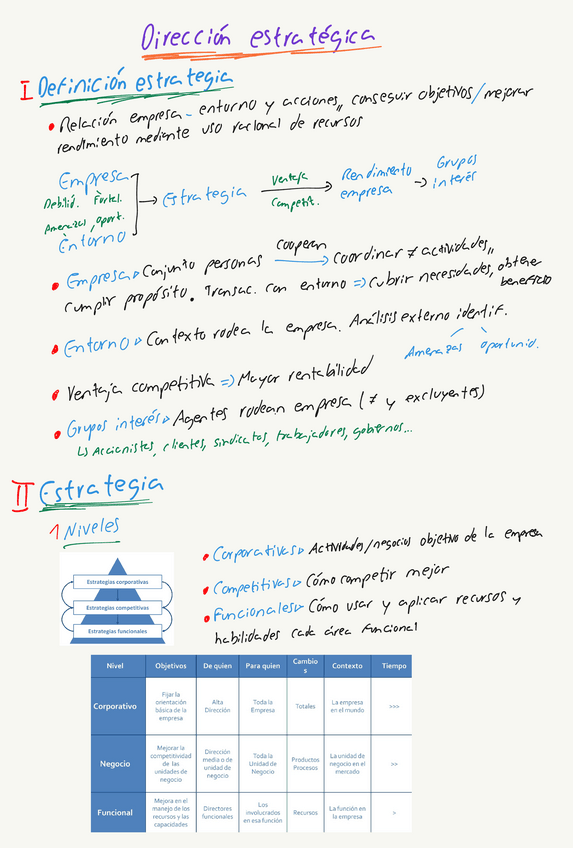 Dirección estratégica
I Definición estrategia
• Relación empresa - entorno y acciones,, conseguir objetivos/mejorar
rendimiento mediante uso racional de recursos
Empresa
Debilid. Fortal.
Amenazas, oport.
Entorno
→ Estrategia
Ventaja
Competit.
→ Rendimiento
empresa
→ Grupos
interés
• Empresa▹ Conjunto personas cooperan → coordinar ≠ actividades,,
cumplir propósito. Transac. con entorno => cubrir necesidades, obtener
beneficio
• Entorno ▹ Contexto rodea la empresa. Análisis externo identif.
Amenazas oportunid.
• Ventaja competitiva => Mayor rentabilidad
• Grupos interés▹ Agentes rodean empresa (≠ y excluyentes)
↳ Accionistas, clientes, sindicatos, trabajadores, gobiernos...
II Estrategia
1 Niveles
Estrategias corporativas
Estrategias competitivas
Estrategias funcionales
• Corporativas▹ Actividades/negocios objetivo de la empresa
• Competitivas▹ Cómo competir mejor
• Funcionales▹ Cómo usar y aplicar recursos y
habilidades cada área funcional
Nivel Objetivos De quien Para quien Cambio
s Contexto Tiempo
Corporativo
Fijar la
orientación
básica de la
empresa
Alta
Dirección
Toda la
Empresa
Totales
La empresa
en el mundo
>>>
Negocio
Mejorar la
competitividad
de las
unidades de
negocio
Dirección
media o de
unidad de
negocio
Toda la
Unidad de
Negocio
Productos
Procesos
La unidad de
negocio en el
mercado
>>
Funcional
Mejora en el
manejo de los
recursos y las
capacidades
Directores
funcionales
Los
involucrados
en esa función
Recursos
La función en
la empresa
>